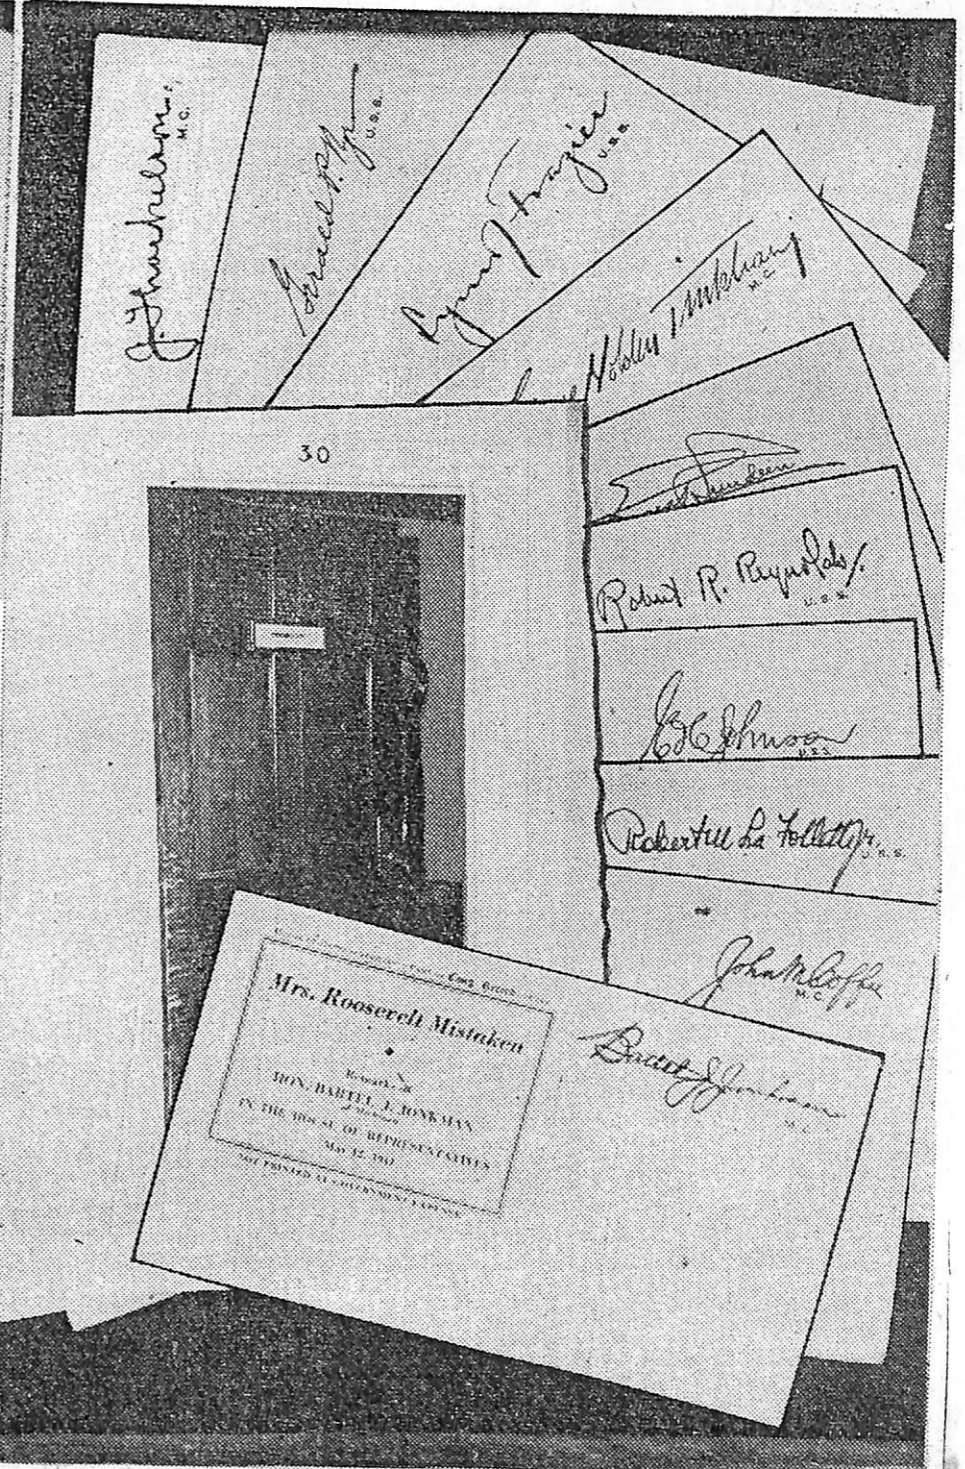 J. Thorkelson
M.C.
Gerald P. Nye
U.S.S.
Lynn J. Frazier
U.S.S.
Holden Tinkham
M.C.
30
Lundeen
Robert R. Reynolds
U.S.S.
E C Johnson
U.S.S.
Robert M La Follette Jr.
U.S.S.
John M Coffee
M.C.
Cong. Record
Mrs. Roosevelt Mistaken
Remarks of
HON. BARTEL J. JONKMAN
of Michigan
IN THE HOUSE OF REPRESENTATIVES
May 12, 1941
NOT PRINTED AT GOVERNMENT EXPENSE
Bartel J. Jonkman
M.C.